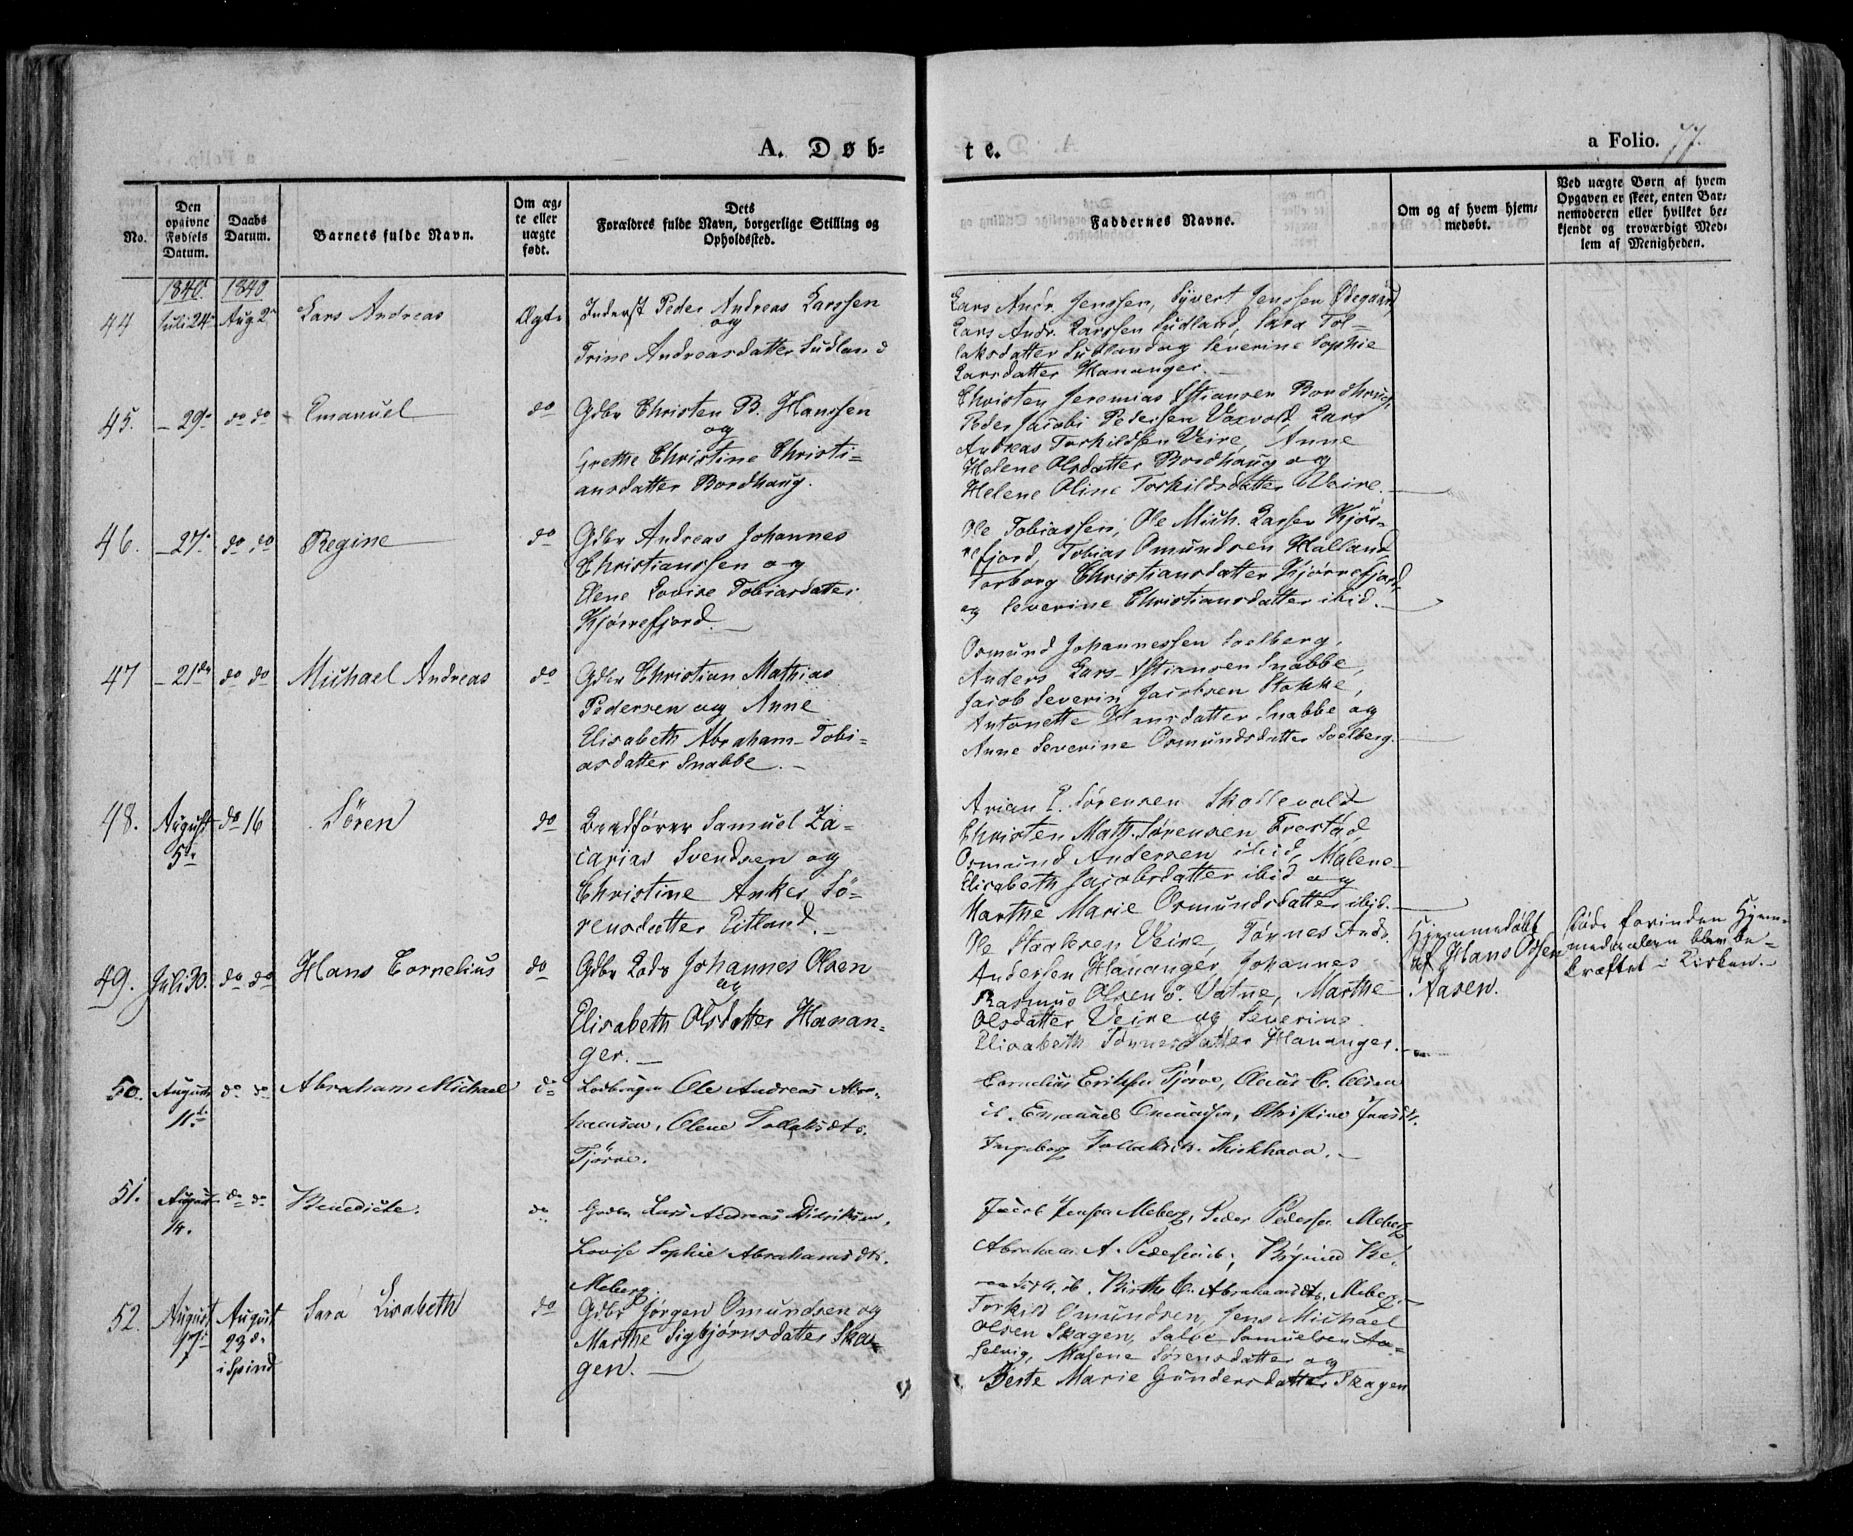 A. Døb-
te.
a Folio. 77.
No.
Den opgivne Fødsels Datum.
Daabs Datum.
Barnets fulde Navn.
Om ægte eller uægte født.
Dets
Forældres fulde Navn, borgerlige Stilling og
Opholdssted.
Faddernes Navne.
Om og af hvem hjem-
medøbt.
Ved uægte Børn af hvem
Opgaven er skeet, enten Bar-
nemoderen eller hvilket be-
kjendt og troværdigt Med-
lem af Menigheden.
1840. 1840
44 Juli 24de Aug 2de Lars Andreas Ægte Inderst Peder Andreas Larssen
og
Trine Andreasdatter Sudland
Lars Andr Jenssen, Syvert Jenssen Ødegaard,
Lars Andr. Larssen Sudland, Sara Tol-
laksdatter Sudland og Severine Sophie
Larsdatter Hananger.
45. – 29de do do Emanuel do Gdbr Christen B. Hanssen
og
Grethe Christine Christi-
ansdatter Bordhaug.
Christen Jeremias Xstiansen Bordhaug,
Peder Jacobi Pedersen Vaxvold Lars
Andreas Torkildsen Veire, Anne
Helene Olsdatter Bordhaug og
Helene Oline Torkildsdatter Veire.
46. – 27de do do Regine do Gdbr Andreas Johannes
Christianssen og
Elene Lovise Tobiasdatter
Kjørrefjord.
Ole Tobiassen, Ole Mich. Larsen Kjør-
refjord, Tobias Omundsen Halland,
Torborg Christiansdatter Kjørrefjord,
og Severine Christiansdatter ibid.
47 – 21de do do Michael Andreas do Gdbr Christian Mathias
Pedersen og Anne
Elisabeth Abraham-Tobi-
asdatter Snabbe.
Osmund Johannessen Soelberg,
Anders Lars Xstiansen Snabbe,
Jacob Severin Jacobsen Stokke,
Antonette Hansdatter Snabbe og
Anne Severine Osmundsdatter Soelberg.
48. August 5te do 16 Sören do Brødfører Samuel Za-
carias Svendsen og
Christine Anker Sö-
rensdatter Eitland.
Arian P. Sørensen Skollevold
Christen Math. Sørensen Frestad,
Osmund Andersen ibid, Malene
Elisabeth Jacobsdatter ibid og
Marthe Marie Osmundsdatter ibid.
49. Juli 30. do do Hans Cornelius do Gdbr Lods Johannes Olsen
og
Elisabeth Olsdatter Hanan-
ger.
Ole Starksen Veire, Tønnes Ands.
Andersen Hananger, Johannes
Rasmus Olsen ö. Vatne, Marthe
Olsdatter Veire og Severine
Elisabeth Tønnesdatter Hananger.
Hjemmedøbt
af Hans Olsen
Aasen.
medaaben blev be-
kræftet i Kirken.
50. August 11te do do Abraham Michael do Ole Andreas Abra-
hamsen, Olene Tollaksdtr.
Tjørve.
Cornelius Eriksen Tjørve, Olaus C. Olsen
ib. Emanuel Omundsen, Christine Jensdtr.
Ingeborg Tollaksdtr.
51. August 14. do do Benedicte. do Gdbr Lars Andreas Didriksen,
Lovise Sophie Abrahamsdtr.
Meberg.
Jacob Jensen Meberg, Peder Pedersen Meberg
Abraham A. Pedersen ib,
ib. Birthe C. Abrahamsdtr. Meberg.
52. August 17de August 23de i Spind Sara Lisabeth do Gdbr Jørgen Omundsen og
Marthe Sigbjørnsdatter Ska-
gen.
Torkild Omundsen, Jens Michael
Olsen Skagen, Salve Samuelsen Aa-
selvig, Malene Sørensdatter og
Berte Marie Gundersdatter Skagen